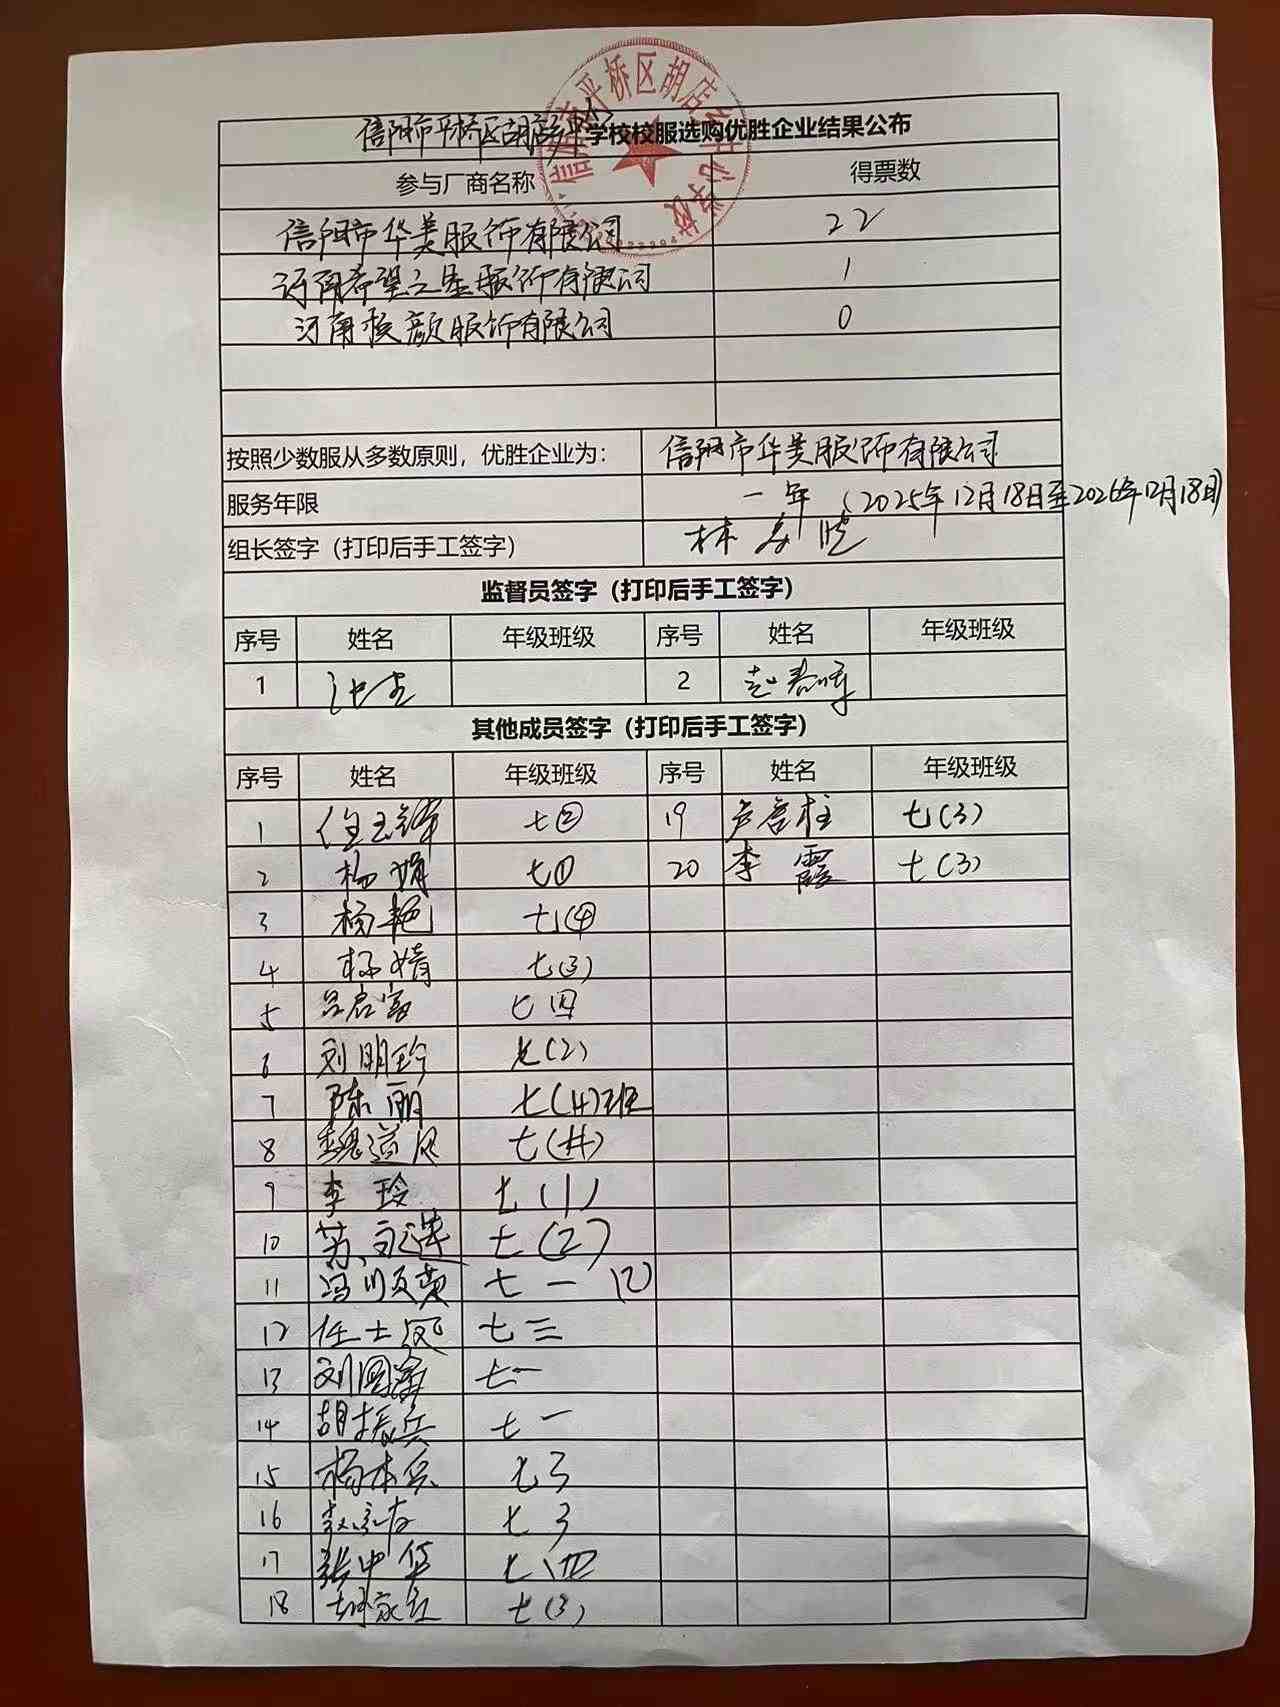 信阳市平桥区胡店乡中心学校校服选购优胜企业结果公布
参与厂商名称 得票数
信阳市华美服饰有限公司 22
河南希望之星服饰有限公司 1
河南校颜服饰有限公司 0
按照少数服从多数原则，优胜企业为： 信阳市华美服饰有限公司
服务年限 一年（2025年12月18日至2026年12月18日）
组长签字（打印后手工签字） 林
监督员签字（打印后手工签字）
序号 姓名 年级班级 序号 姓名 年级班级
1 2 赵春晖
其他成员签字（打印后手工签字）
序号 姓名 年级班级 序号 姓名 年级班级
1 任玉锋 七② 19 卢言柱 七(3)
2 杨娟 七① 20 李霞 七(3)
3 杨艳 七(④
4 杨婧 七(3)
5 吕启富 七四
6 刘明珍 七(2)
7 陈丽 七(4)班
8 魏道凤 七(4)
9 李玲 七(1)
10 苏 七(2)
11 冯顺英 七一(2)
12 任士凤 七三
13 刘国 七一
14 胡振兵 七一
15 杨本兵 七3
16 七3
17 张中华 七四
18 胡家红 七(3)